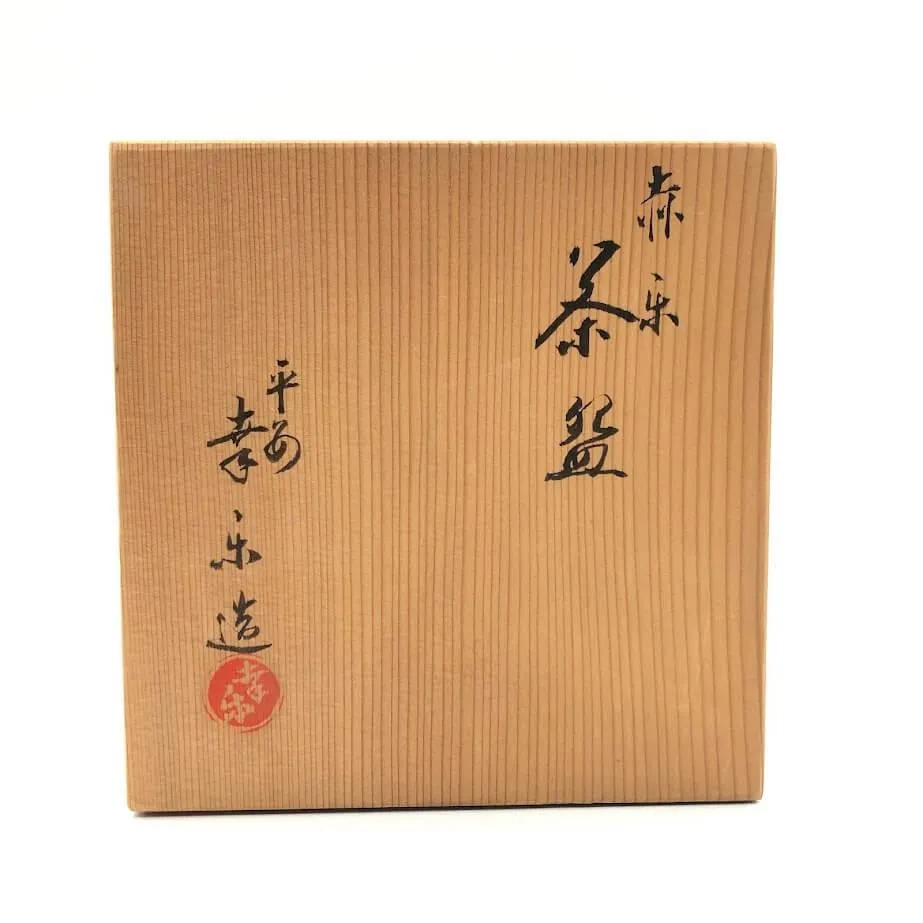 赤楽
茶盌
平安
幸楽造
幸楽